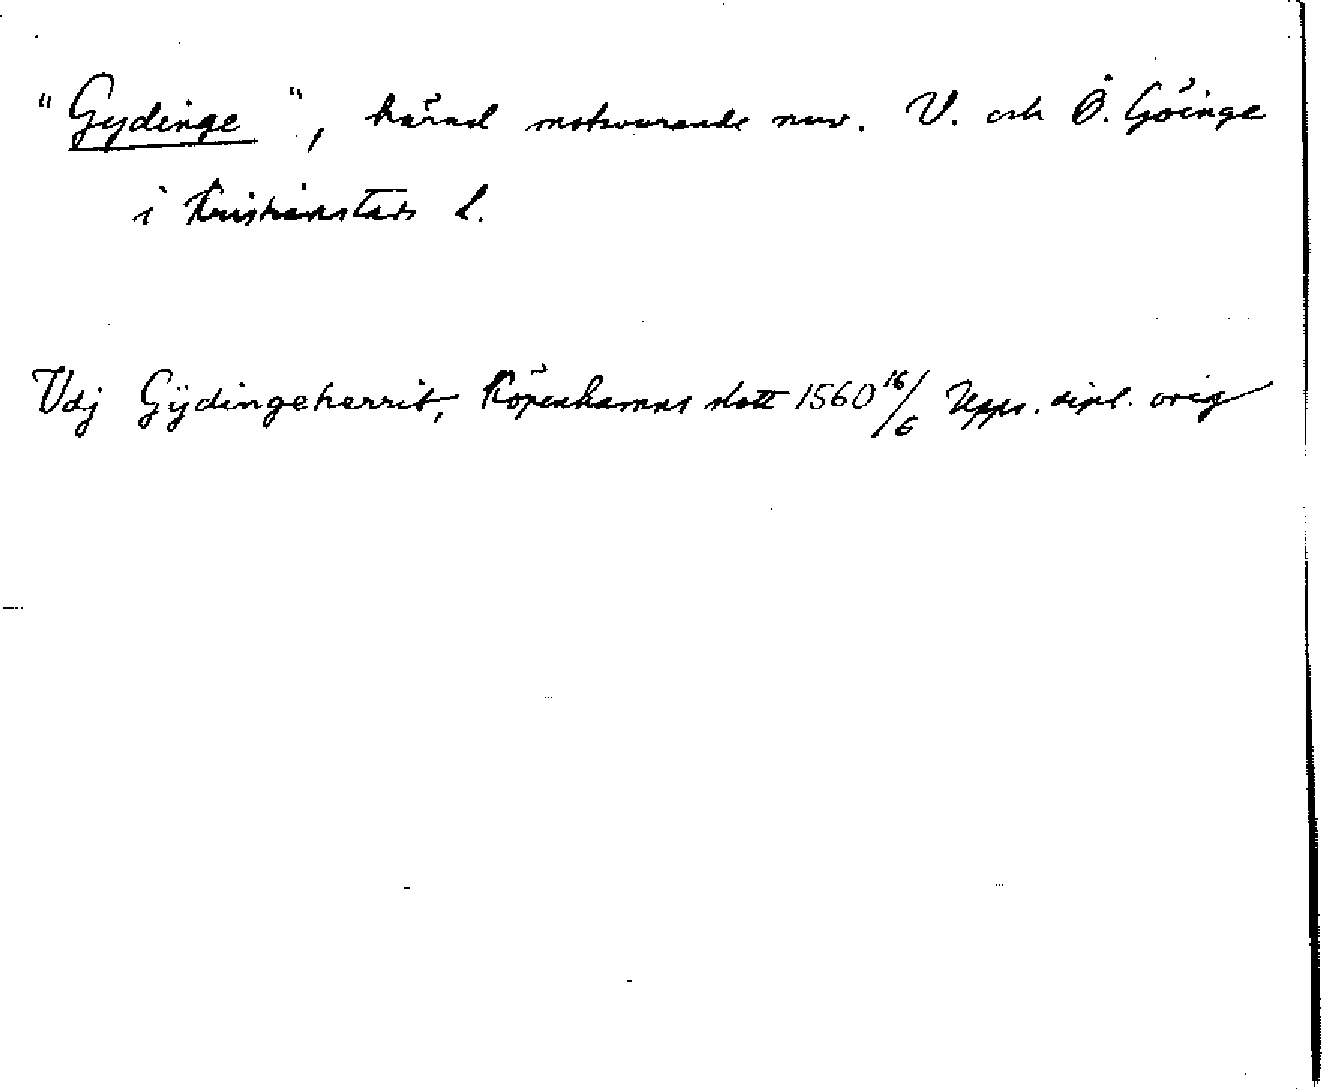 "Gydinge", härad motsvarande nuv. V. och Ö. Göinge
i Kristianstads l.
Vdj Gÿdingeherrit, Köpenhamns slott 1560 16/6 Upps. dipl. orig